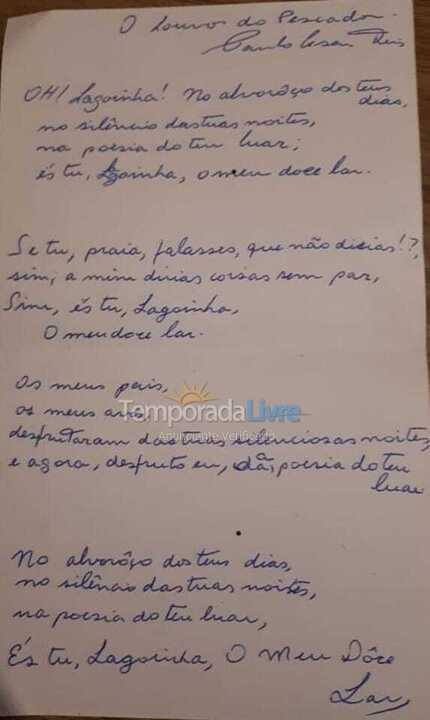 O Louvor do Pescador.
Paulo Cesar Reis
OH! Lagoinha! No alvorôço dos teus
dias,
no silêncio das tuas noites,
na poesia do teu luar;
és tu, Lagoinha, o meu doce lar.
Se tu, praia, falasses, que não dirias!?,
sim, a mim dirias coisas sem par,
Sim, és tu, Lagoinha,
O meu doce lar.
Os meus pais,
os meus avós,
TemporadaLivre
desfrutaram das tuas silenciosas noites,
Anunciante Verificado
e agora, desfruto eu, da poesia do teu
luar
No alvorôço dos teus dias,
no silêncio das tuas noites,
na poesia do teu luar,
És tu, Lagoinha, O Meu Dôce
Lar,